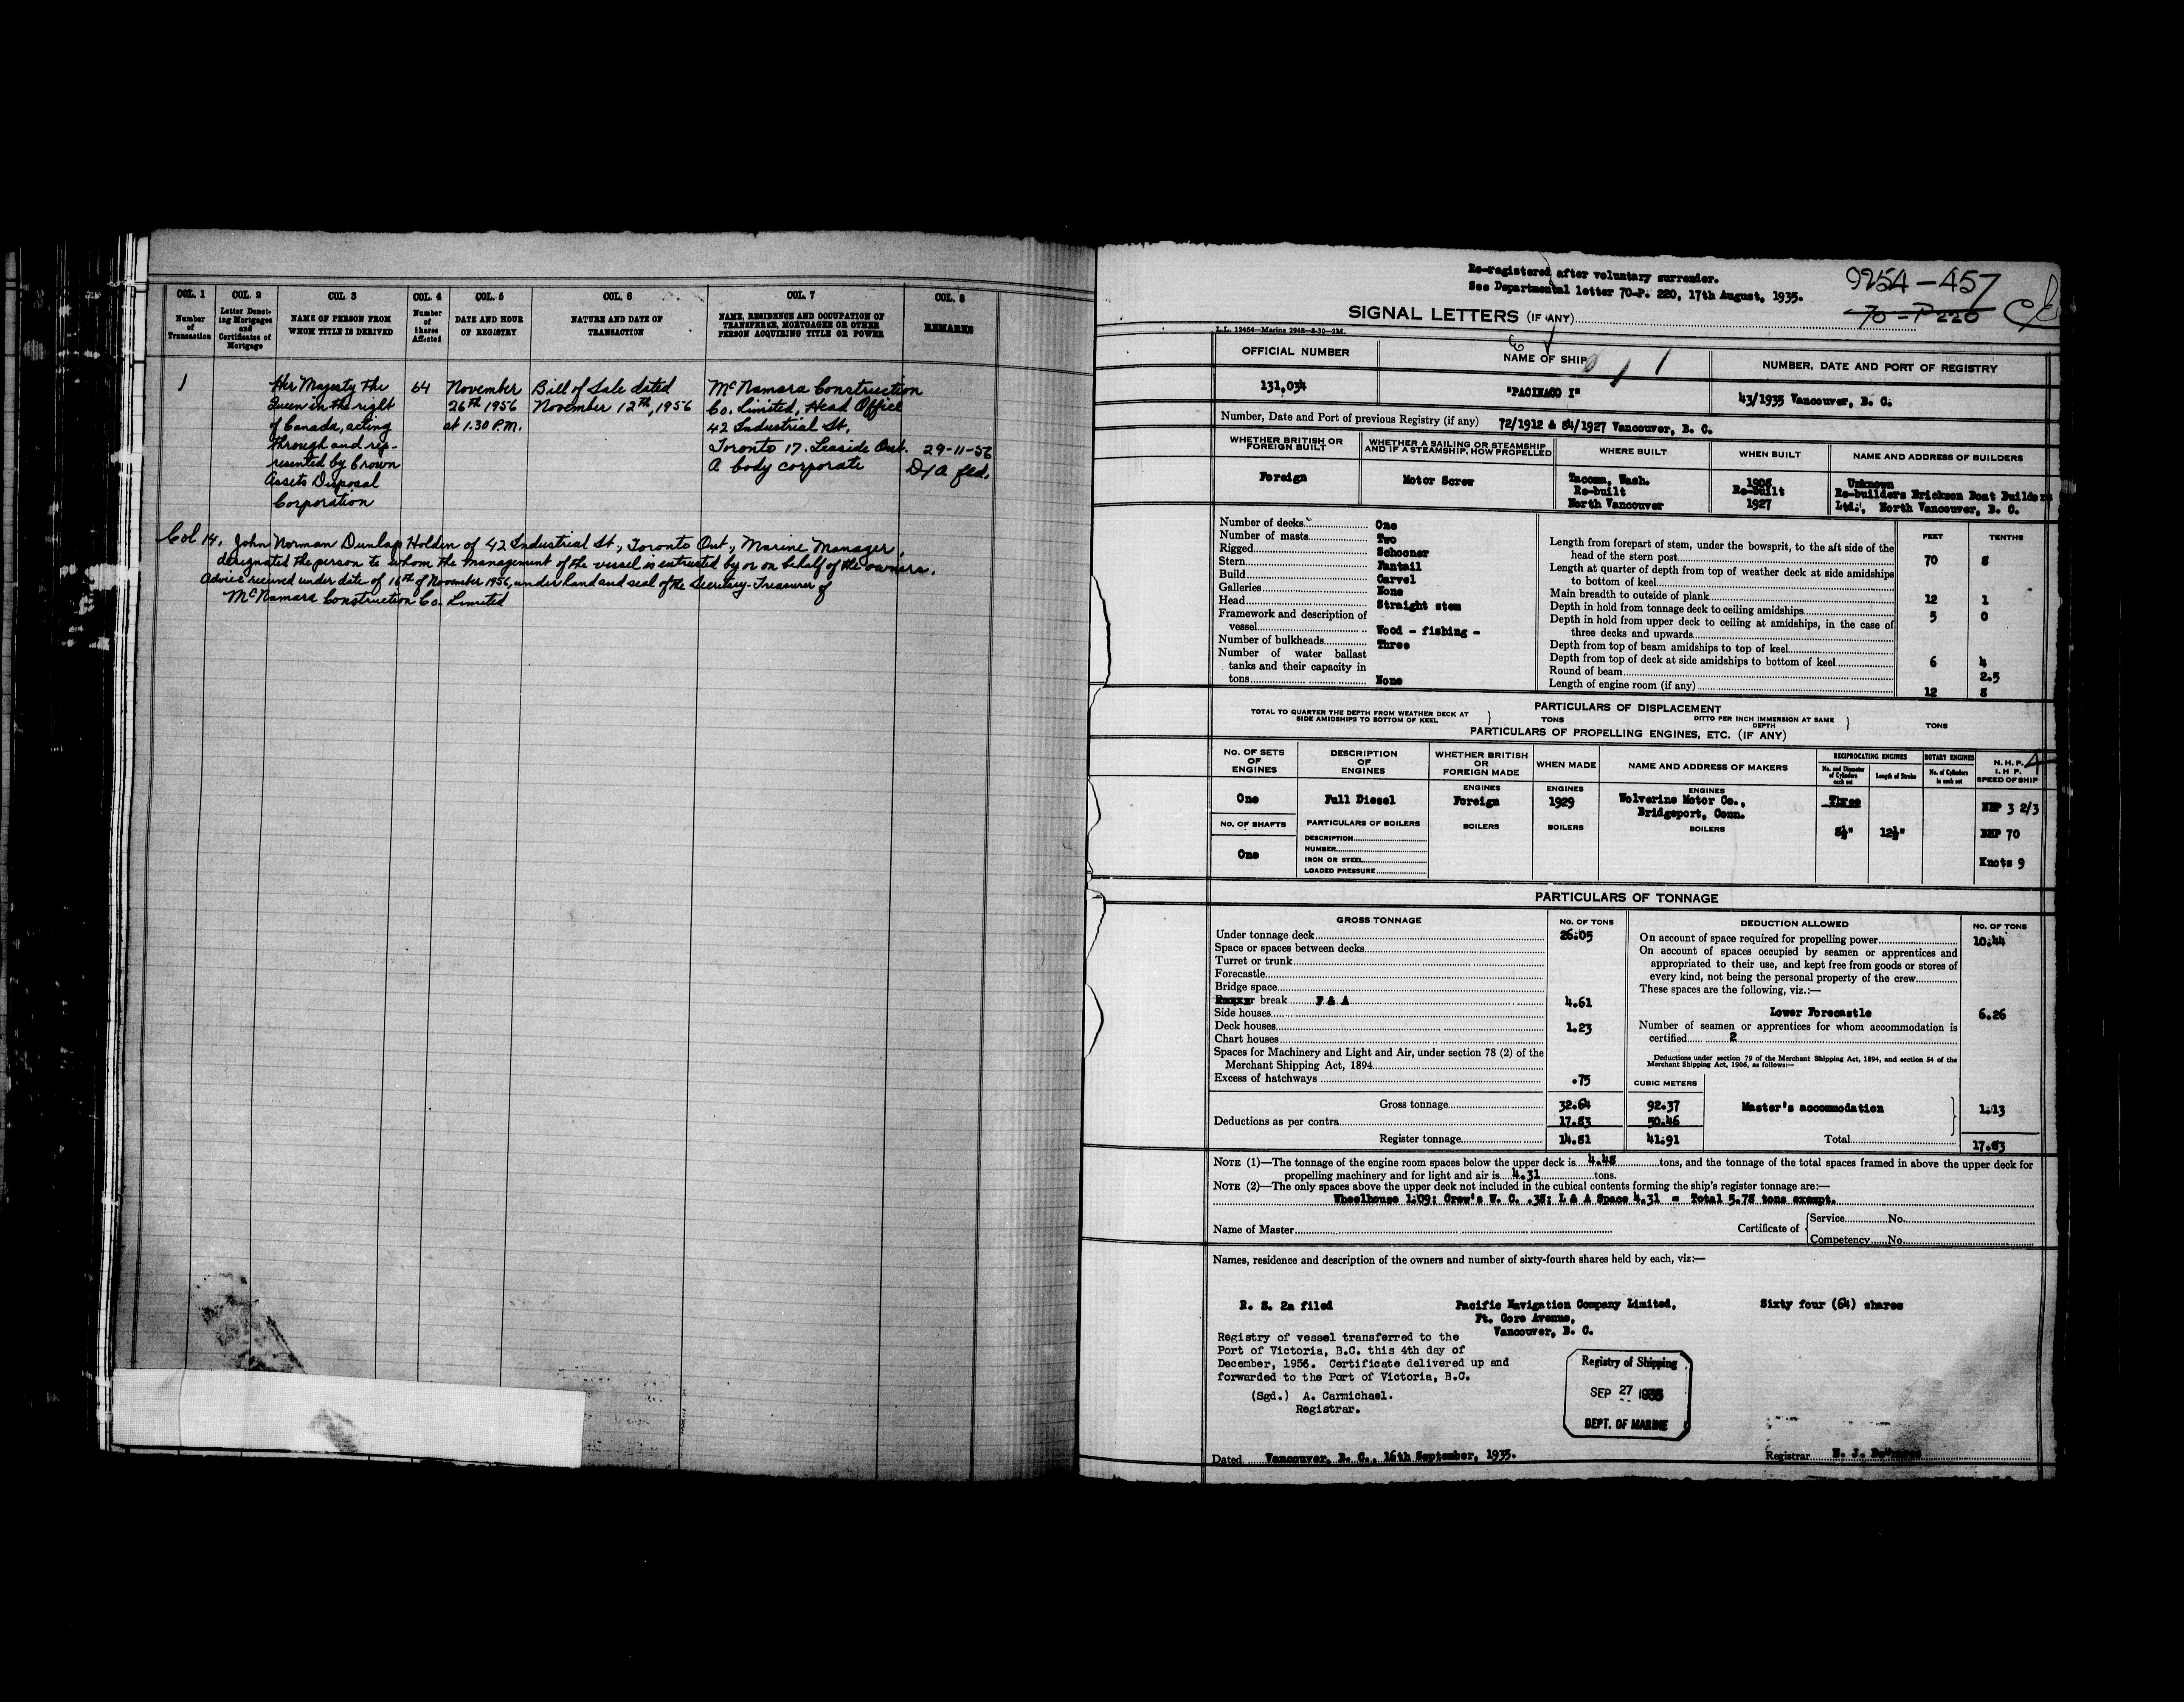 COL. 1 COL. 2 COL. 3 COL. 4 COL. 5 COL. 6 COL. 7 COL. 8
Number of Transaction
Letter Denoting Mortgages and Certificates of Mortgage
NAME OF PERSON FROM WHOM TITLE IS DERIVED
Number of Shares Affected
DATE AND HOUR OF REGISTRY
NATURE AND DATE OF TRANSACTION
NAME, RESIDENCE AND OCCUPATION OF TRANSFEREE, MORTGAGEE OR OTHER PERSON ACQUIRING TITLE OR POWER
REMARKS
1 Her Majesty the 64 November Bill of Sale dated McNamara Construction
Queen in the right 26th 1956 November 12th, 1956 Co. Limited, Head Office
of Canada, acting at 1.30 P.M. 42 Industrial St.,
through and rep- Toronto 17. Leaside Ont. 29-11-56
resented by Crown A body corporate D/A fld.
Assets Disposal
Corporation
Col 14. John Norman Dunlap Holden of 42 Industrial St., Toronto Ont., Marine Manager,
designated the person to whom the management of the vessel is entrusted by or on behalf of the owners.
Advice received under date of 16th of November 1956, under hand and seal of the Secretary-Treasurer of
McNamara Construction Co. Limited
Re-registered after voluntary surrender.
See Departmental letter 70-P. 220, 17th August, 1935.
9254-457
70-P220
SIGNAL LETTERS (IF ANY)
L.L. 12464—Marine 2948—8-30—2M.
OFFICIAL NUMBER NAME OF SHIP NUMBER, DATE AND PORT OF REGISTRY
131,034 "PACINACO I" 43/1935 Vancouver, B. C.
Number, Date and Port of previous Registry (if any) 72/1912 & 84/1927 Vancouver, B. C.
WHETHER BRITISH OR FOREIGN BUILT
WHETHER A SAILING OR STEAMSHIP AND IF A STEAMSHIP, HOW PROPELLED
WHERE BUILT WHEN BUILT NAME AND ADDRESS OF BUILDERS
Foreign Motor Screw Tacoma, Wash. 1908 Unknown
Re-built Re-built Re-builders Erickson Boat Builders
North Vancouver 1927 Ltd., North Vancouver, B. C.
Number of decks One
Number of masts Two
Rigged Schooner
Stern Fantail
Build Carvel
Galleries None
Head Straight stem
Framework and description of
vessel Wood - fishing -
Number of bulkheads Three
Number of water ballast
tanks and their capacity in
tons None
FEET TENTHS
Length from forepart of stem, under the bowsprit, to the aft side of the
head of the stern post 70 8
Length at quarter of depth from top of weather deck at side amidships
to bottom of keel
Main breadth to outside of plank 12 1
Depth in hold from tonnage deck to ceiling amidships 5 0
Depth in hold from upper deck to ceiling at amidships, in the case of
three decks and upwards
Depth from top of beam amidships to top of keel
Depth from top of deck at side amidships to bottom of keel 6 4
Round of beam 2.5
Length of engine room (if any) 12 8
PARTICULARS OF DISPLACEMENT
TOTAL TO QUARTER THE DEPTH FROM WEATHER DECK AT SIDE AMIDSHIPS TO BOTTOM OF KEEL } TONS
DITTO PER INCH IMMERSION AT SAME DEPTH } TONS
PARTICULARS OF PROPELLING ENGINES, ETC. (IF ANY)
No. OF SETS OF ENGINES
DESCRIPTION OF ENGINES
WHETHER BRITISH OR FOREIGN MADE
WHEN MADE
NAME AND ADDRESS OF MAKERS
RECIPROCATING ENGINES
No. and Diameter of Cylinders each set
Length of Stroke
ROTARY ENGINES
No. of Cylinders in each set
N. H. P. I. H. P. SPEED OF SHIP
ENGINES ENGINES ENGINES
One Full Diesel Foreign 1929 Wolverine Motor Co., Three NHP 3 2/3
Bridgeport, Conn.
No. OF SHAFTS PARTICULARS OF BOILERS BOILERS BOILERS BOILERS 8½" 12½" BHP 70
DESCRIPTION
One NUMBER
IRON OR STEEL Knots 9
LOADED PRESSURE
PARTICULARS OF TONNAGE
GROSS TONNAGE No. OF TONS
Under tonnage deck 26.05
Space or spaces between decks
Turret or trunk
Forecastle
Bridge space
break F & A 4.61
Side houses
Deck houses 1.23
Chart houses
Spaces for Machinery and Light and Air, under section 78 (2) of the
Merchant Shipping Act, 1894
Excess of hatchways .75
CUBIC METERS
Gross tonnage 32.64 92.37
Deductions as per contra 17.83 50.46
Register tonnage 14.81 41.91
DEDUCTION ALLOWED No. OF TONS
On account of space required for propelling power 10.44
On account of spaces occupied by seamen or apprentices and
appropriated to their use, and kept free from goods or stores of
every kind, not being the personal property of the crew
These spaces are the following, viz.:—
Lower Forecastle 6.26
Number of seamen or apprentices for whom accommodation is
certified 2
Deductions under section 79 of the Merchant Shipping Act, 1894, and section 54 of the
Merchant Shipping Act, 1906, as follows:—
Master's accommodation 1.13
Total 17.83
NOTE (1)—The tonnage of the engine room spaces below the upper deck is 4.48 tons, and the tonnage of the total spaces framed in above the upper deck for
propelling machinery and for light and air is 4.31 tons.
NOTE (2)—The only spaces above the upper deck not included in the cubical contents forming the ship's register tonnage are:—
Wheelhouse 1.09; Crew's W. C. .38; L & A Space 4.31 = Total 5.78 tons exempt.
Name of Master
Certificate of { Service No.
Competency No.
Names, residence and description of the owners and number of sixty-fourth shares held by each, viz:—
R. S. 2a filed Pacific Navigation Company Limited, Sixty four (64) shares
Ft. Gore Avenue,
Vancouver, B. C.
Registry of vessel transferred to the
Port of Victoria, B.C. this 4th day of
December, 1956. Certificate delivered up and
forwarded to the Port of Victoria, B.C.
(Sgd.) A. Carmichael.
Registrar.
Registry of Shipping
SEP 27 1935
DEPT. OF MARINE
Dated Vancouver, B. C., 16th September, 1935.
Registrar